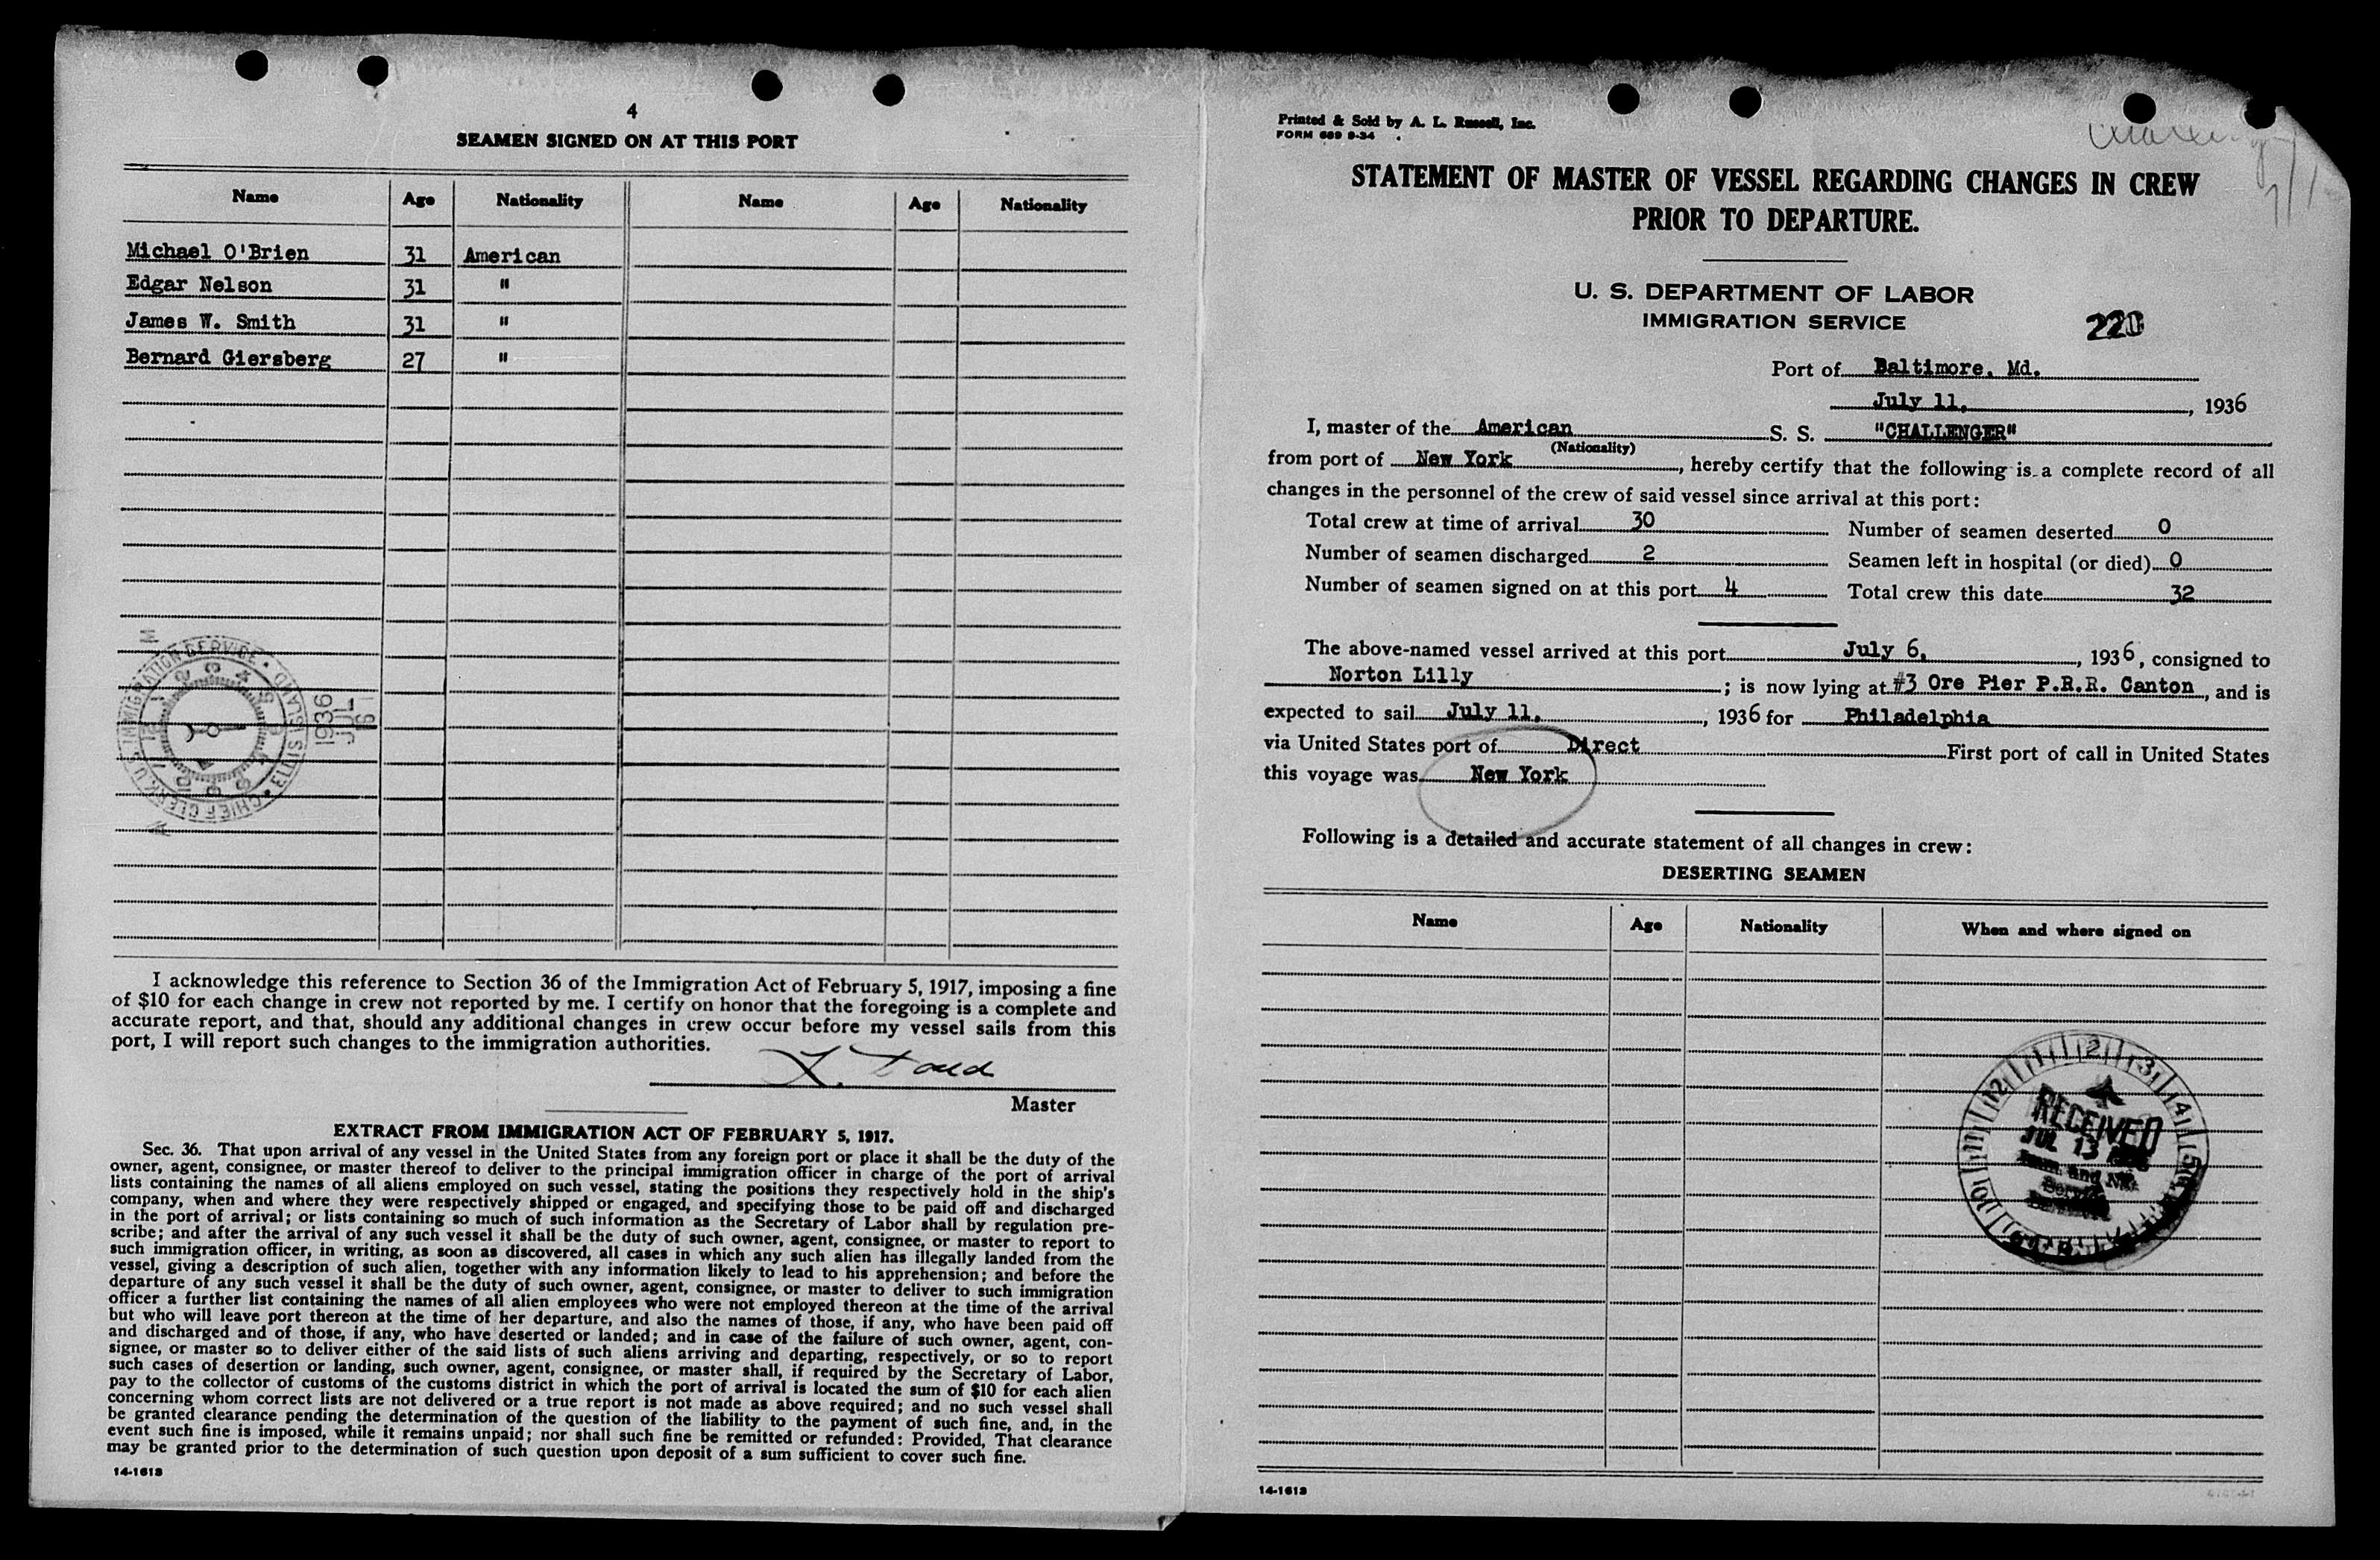 4
SEAMEN SIGNED ON AT THIS PORT
Name Age Nationality Name Age Nationality
Michael O'Brien 31 American
Edgar Nelson 31 "
James W. Smith 31 "
Bernard Giersberg 27 "
U.S. IMMIGRATION SERVICE • ELLIS ISLAND • CHIEF CLERK
1936
JUL
I acknowledge this reference to Section 36 of the Immigration Act of February 5, 1917, imposing a fine
of $10 for each change in crew not reported by me. I certify on honor that the foregoing is a complete and
accurate report, and that, should any additional changes in crew occur before my vessel sails from this
port, I will report such changes to the immigration authorities.
Master
EXTRACT FROM IMMIGRATION ACT OF FEBRUARY 5, 1917.
Sec. 36. That upon arrival of any vessel in the United States from any foreign port or place it shall be the duty of the
owner, agent, consignee, or master thereof to deliver to the principal immigration officer in charge of the port of arrival
lists containing the names of all aliens employed on such vessel, stating the positions they respectively hold in the ship's
company, when and where they were respectively shipped or engaged, and specifying those to be paid off and discharged
in the port of arrival; or lists containing so much of such information as the Secretary of Labor shall by regulation pre-
scribe; and after the arrival of any such vessel it shall be the duty of such owner, agent, consignee, or master to report to
such immigration officer, in writing, as soon as discovered, all cases in which any such alien has illegally landed from the
vessel, giving a description of such alien, together with any information likely to lead to his apprehension; and before the
departure of any such vessel it shall be the duty of such owner, agent, consignee, or master to deliver to such immigration
officer a further list containing the names of all alien employees who were not employed thereon at the time of the arrival
but who will leave port thereon at the time of her departure, and also the names of those, if any, who have been paid off
and discharged and of those, if any, who have deserted or landed; and in case of the failure of such owner, agent, con-
signee, or master so to deliver either of the said lists of such aliens arriving and departing, respectively, or so to report
such cases of desertion or landing, such owner, agent, consignee, or master shall, if required by the Secretary of Labor,
pay to the collector of customs of the customs district in which the port of arrival is located the sum of $10 for each alien
concerning whom correct lists are not delivered or a true report is not made as above required; and no such vessel shall
be granted clearance pending the determination of the question of the liability to the payment of such fine, and, in the
event such fine is imposed, while it remains unpaid; nor shall such fine be remitted or refunded: Provided, That clearance
may be granted prior to the determination of such question upon deposit of a sum sufficient to cover such fine.
14-1613
Printed & Sold by A. L. Russell, Inc.
FORM 689 9-34
STATEMENT OF MASTER OF VESSEL REGARDING CHANGES IN CREW
PRIOR TO DEPARTURE.
U. S. DEPARTMENT OF LABOR
IMMIGRATION SERVICE
220
Port of Baltimore, Md.
July 11, , 1936
I, master of the American S. S. "CHALLENGER"
(Nationality)
from port of New York , hereby certify that the following is a complete record of all
changes in the personnel of the crew of said vessel since arrival at this port:
Total crew at time of arrival 30 Number of seamen deserted 0
Number of seamen discharged 2 Seamen left in hospital (or died) 0
Number of seamen signed on at this port 4 Total crew this date 32
The above-named vessel arrived at this port July 6, , 1936, consigned to
Norton Lilly ; is now lying at #3 Ore Pier P.R.R. Canton, and is
expected to sail July 11, , 1936 for Philadelphia
via United States port of Direct First port of call in United States
this voyage was New York
Following is a detailed and accurate statement of all changes in crew:
DESERTING SEAMEN
Name Age Nationality When and where signed on
RECEIVED
JUL 13 1936
14-1613